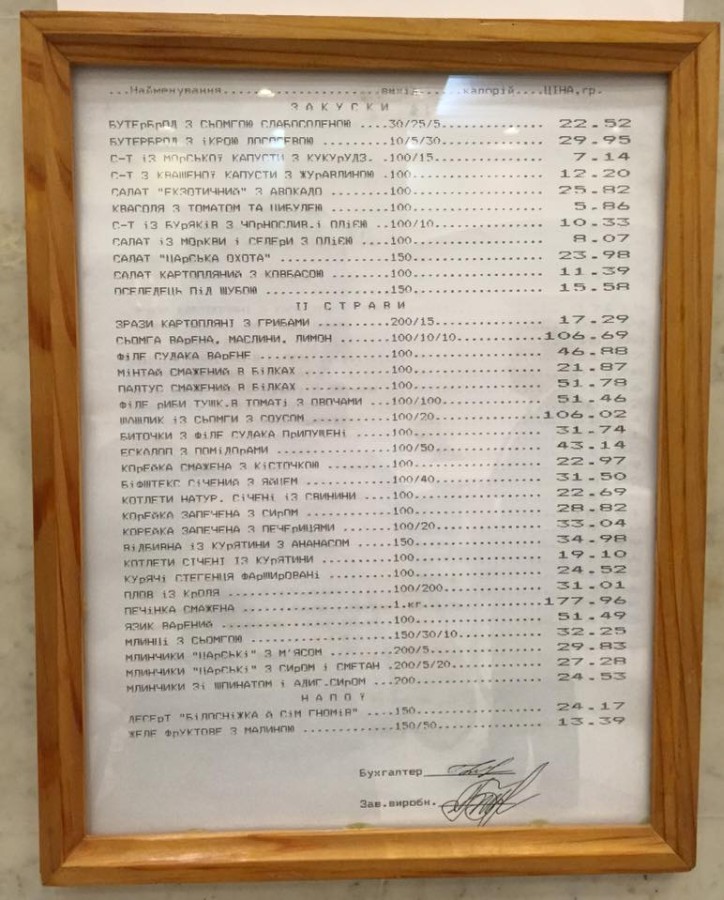 ...Найменування....................вихід......калорій....ЦІНА,гр.
З А К У С К И
БУТЕРБРОД З СЬОМГОЮ СЛАБОСОЛЕНОЮ ....30/25/5............... 22.52
БУТЕРБРОД З ІКРОЮ ЛОСОСЕВОЮ .........10/5/30............... 29.95
С-Т ІЗ МОРСЬКОЇ КАПУСТИ З КУКУРУДЗ. .100/15................ 7.14
С-Т З КВАШЕНОЇ КАПУСТИ З ЖУРАВЛИНОЮ .100................... 12.20
САЛАТ "ЕКЗОТИЧНИЙ" З АВОКАДО ........100................... 25.82
КВАСОЛЯ З ТОМАТОМ ТА ЦИБУЛЕЮ ........100................... 5.86
С-Т ІЗ БУРЯКІВ З ЧОРНОСЛИВ.І ОЛІЄЮ ..100/10................ 10.33
САЛАТ ІЗ МОРКВИ І СЕЛЕРИ З ОЛІЄЮ ....100................... 8.07
САЛАТ "ЦАРСЬКА ОХОТА" ...............150................... 23.98
САЛАТ КАРТОПЛЯНИЙ З КОВБАСОЮ ........100................... 11.39
ОСЕЛЕДЕЦЬ ПІД ШУБОЮ .................150................... 15.58
ІІ С Т Р А В И
ЗРАЗИ КАРТОПЛЯНІ З ГРИБАМИ ..........200/15................ 17.29
СЬОМГА ВАРЕНА, МАСЛИНИ, ЛИМОН .......100/10/10.............106.69
ФІЛЕ СУДАКА ВАРЕНЕ ..................100................... 46.88
МІНТАЙ СМАЖЕНИЙ В БІЛКАХ ............100................... 21.87
ПАЛТУС СМАЖЕНИЙ В БІЛКАХ ............100................... 51.78
ФІЛЕ РИБИ ТУШК.В ТОМАТІ З ОВОЧАМИ ...100/100............... 51.46
ШАШЛИК ІЗ СЬОМГИ З СОУСОМ ...........100/20................106.02
БИТОЧКИ З ФІЛЕ СУДАКА ПРИПУЩЕНІ .....100................... 31.74
ЕСКАЛОП З ПОМІДОРАМИ ................100/50................ 43.14
КОРЕЙКА СМАЖЕНА З КІСТОЧКОЮ .........100................... 22.97
БІФШТЕКС СІЧЕНИЙ З ЯЙЦЕМ ............100/40................ 31.50
КОТЛЕТИ НАТУР. СІЧЕНІ ІЗ СВИНИНИ ....100................... 22.69
КОРЕЙКА ЗАПЕЧЕНА З СИРОМ ............100................... 28.82
КОРЕЙКА ЗАПЕЧЕНА З ПЕЧЕРИЦЯМИ .......100/20................ 33.04
ВІДБИВНА ІЗ КУРЯТИНИ З АНАНАСОМ .....150................... 34.98
КОТЛЕТИ СІЧЕНІ ІЗ КУРЯТИНИ ..........100................... 19.10
КУРЯЧІ СТЕГЕНЦЯ ФАРШИРОВАНІ .........100................... 24.52
ПЛОВ ІЗ КРОЛЯ .......................100/200............... 31.01
ПЕЧІНКА СМАЖЕНА .....................1.кг..................177.96
ЯЗИК ВАРЕНИЙ ........................100................... 51.49
МЛИНЦІ З СЬОМГОЮ ....................150/30/10............. 32.25
МЛИНЧИКИ "ЦАРСЬКІ" З М'ЯСОМ .........200/5................. 29.83
МЛИНЧИКИ "ЦАРСЬКІ" З СИРОМ І СМЕТАН .200/5/20.............. 27.28
МЛИНЧИКИ ЗІ ШПИНАТОМ І АДИГ.СИРОМ ...200................... 24.53
Н А П О Ї
ДЕСЕРТ "БІЛОСНІЖКА Й СІМ ГНОМІВ" ....150................... 24.17
ЖЕЛЕ ФРУКТОВЕ З МАЛИНОЮ .............150/50................ 13.39
Бухгалтер
Зав.виробн.